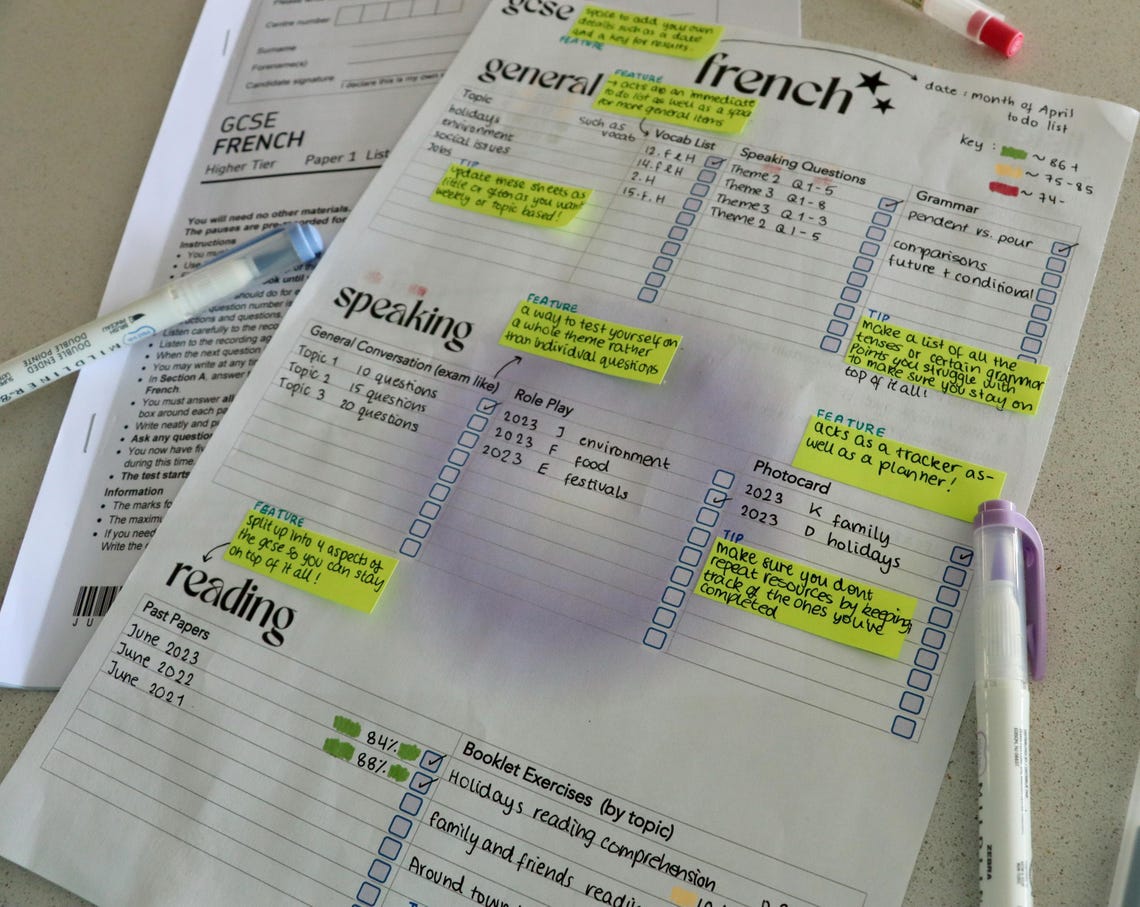 gcse
space to add your own
details such as a date
and a key for results.
FEATURE
french
date : month of April
to do list
key :
~ 86 +
~ 75 - 85
~ 74-
general
FEATURE
→ acts as an immediate
to do list as well as a space
for more general items
such as
vocab
Topic
holidays
environment
social issues
Jobs
TIP
update these sheets as
little or often as you want
weekly or topic based!
Vocab List
12. F & H
14. F & H
2. H
15. F. H
Speaking Questions
Theme 2 Q1-5
Theme 3 Q1-8
Theme 3 Q1-3
Theme 2 Q1-5
Grammar
pendent vs. pour
comparisons
future + conditional
TIP
make a list of all the
tenses or certain grammar
points you struggle with
to make sure you stay on
top of it all!
speaking
FEATURE
a way to test yourself on
a whole theme rather
than individual questions
General Conversation (exam like)
Topic 1 10 questions
Topic 2 15 questions
Topic 3 20 questions
Role Play
2023 J environment
2023 F food
2023 E festivals
FEATURE
acts as a tracker as-
well as a planner!
Photocard
2023 K family
2023 D holidays
TIP
make sure you dont
repeat resources by keeping
track of the ones you've
completed
FEATURE
split up into 4 aspects of
the gcse so you can stay
on top of it all!
reading
Past Papers
June 2023
June 2022
June 2021
84%
88%
Booklet Exercises (by topic)
Holidays reading comprehension
family and friends
Around town
Centre number
Surname
Forename(s)
Candidate signature
I declare this is my own
GCSE
FRENCH
Higher Tier Paper 1
You will need no other materials.
The pauses are
Instructions
Listen carefully to the
Listen to the recording
When the next question
You may write at any
In Section A, answer
French.
You must answer all
box around each
Write neatly and
Ask any question
You now have
during this time.
The test starts
Information
The marks for
The maximum
If you need
Write the
MILDLINER
DOUBLE ENDED
DOUBLE POINTE
ZEBRA